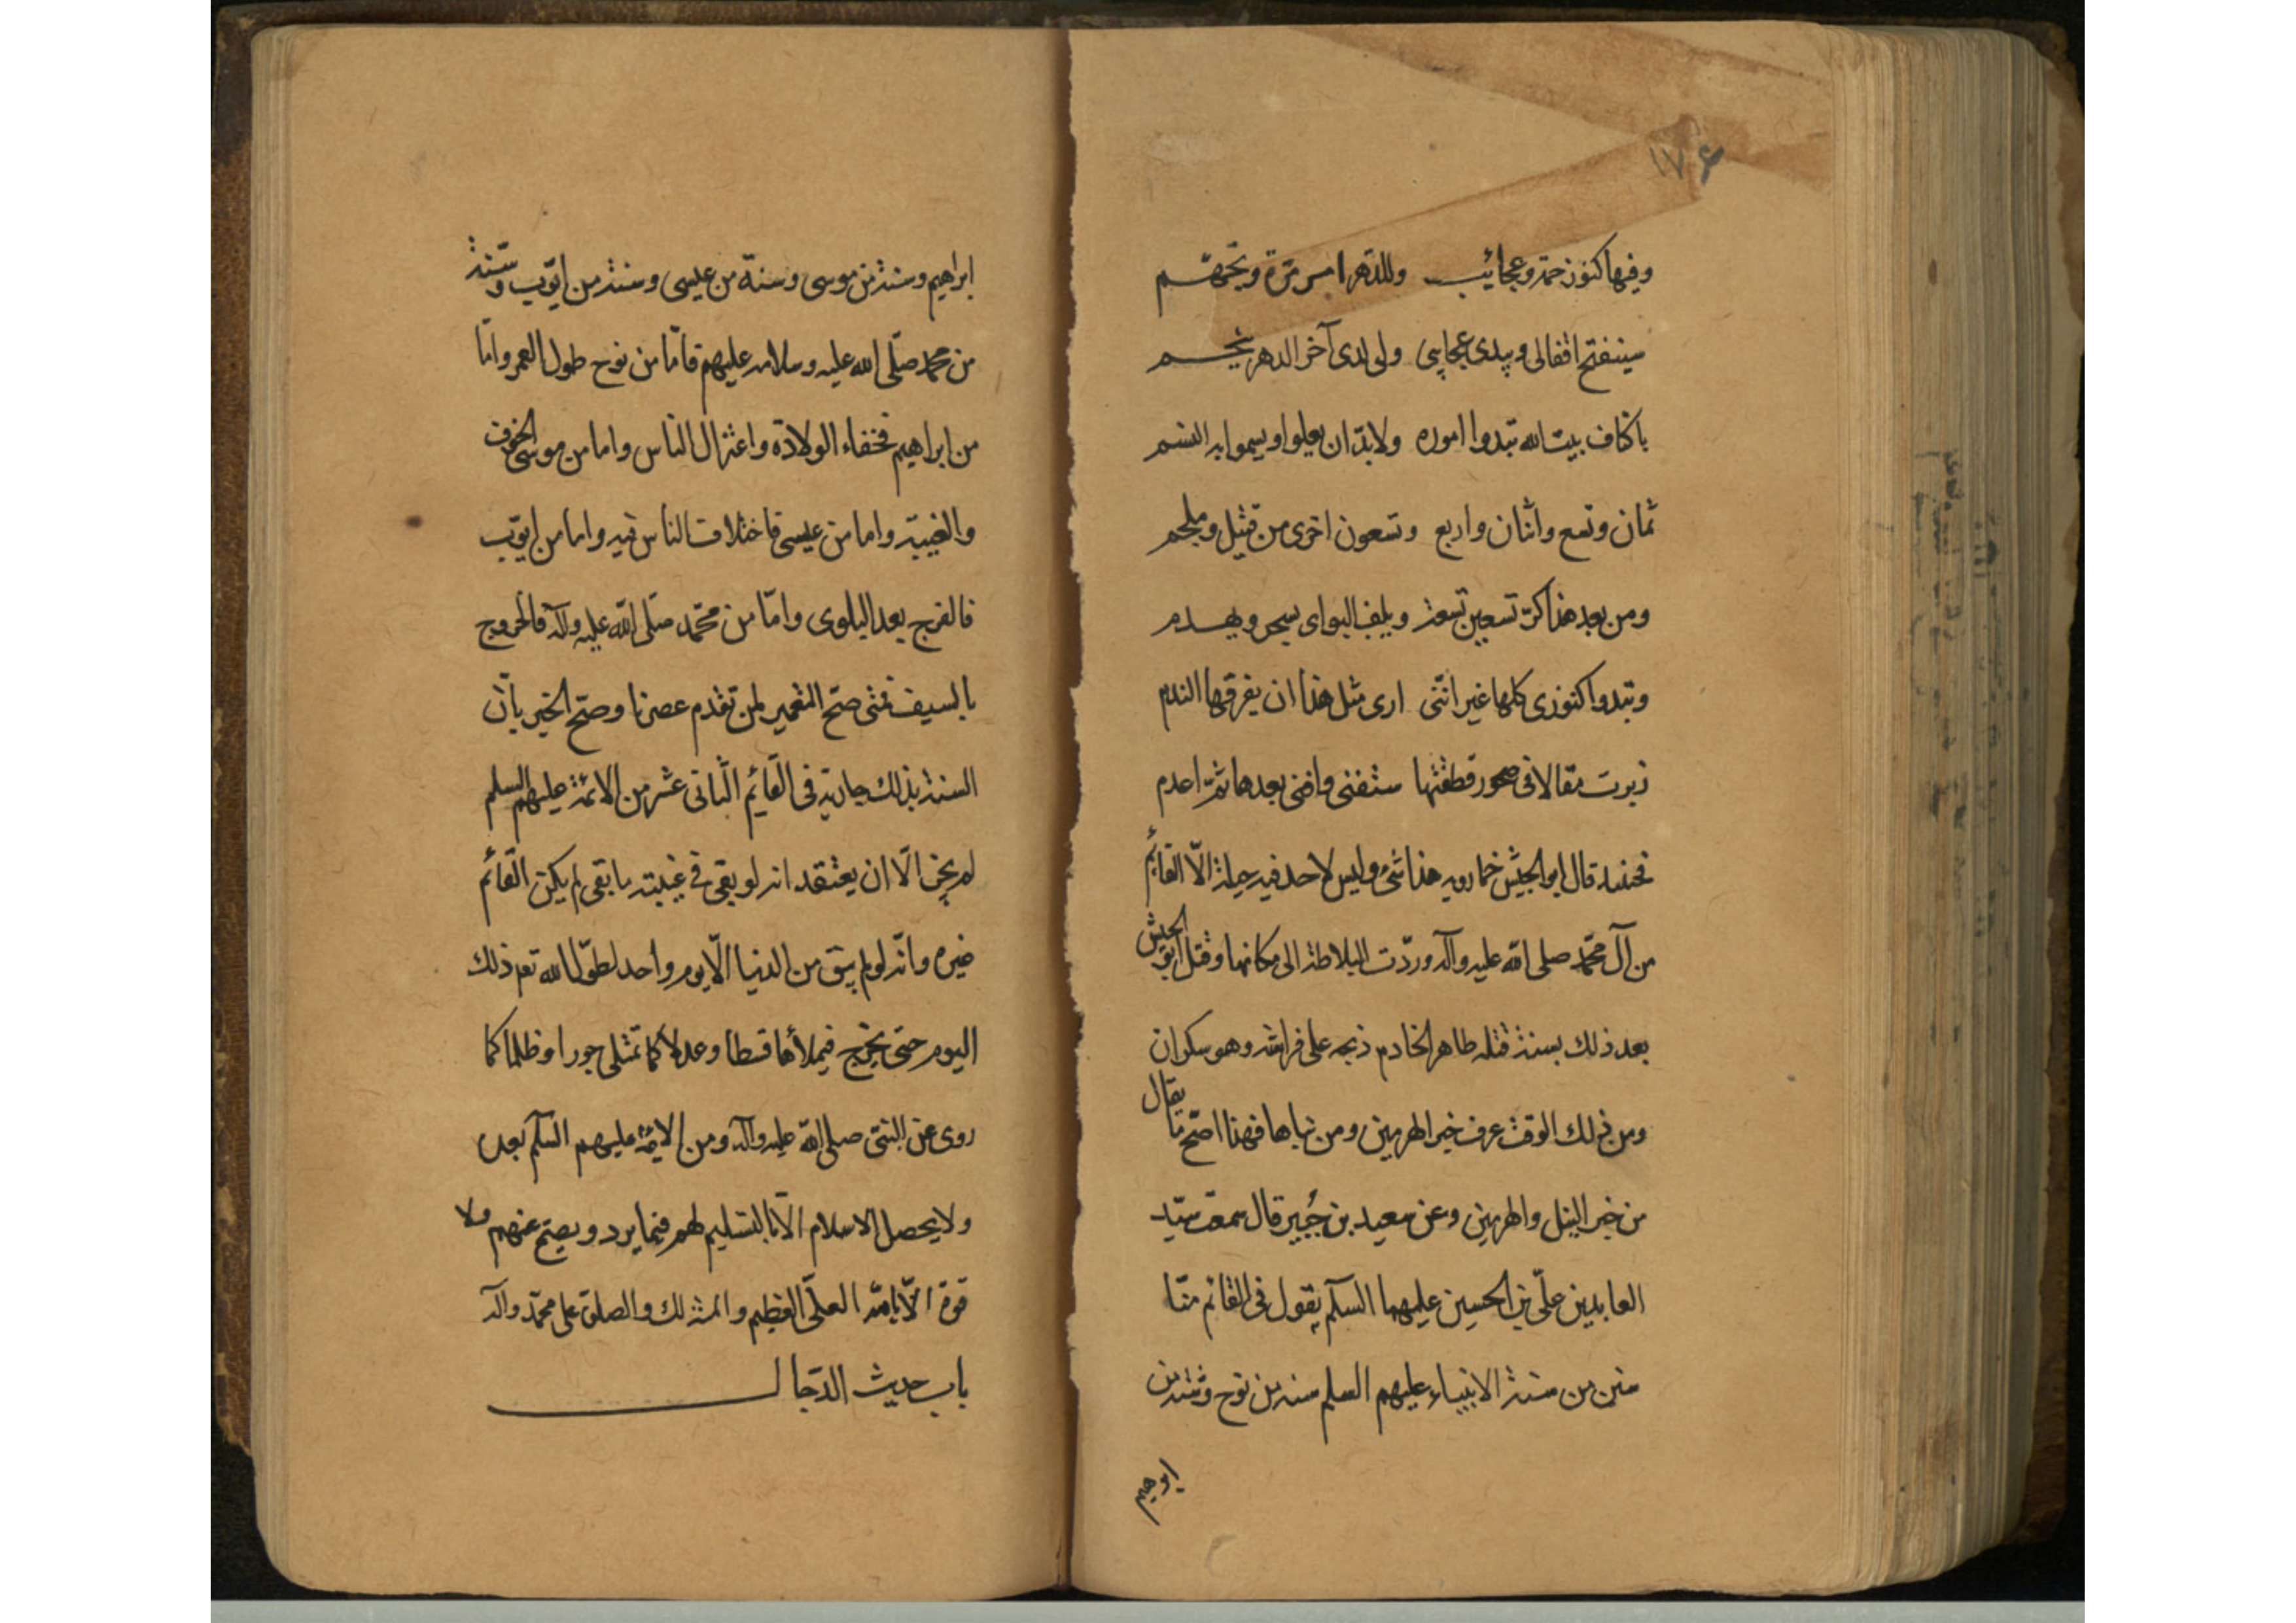 ١٧۶
وفيها كنوز جمة وعجائب وللدهر امر مرة وتجهم
سيفتح اقفالى ويبدى عجايبى ولى لدى آخر الدهر ينجم
باكناف بيت الله تبدوا اموره ولابد ان يعلوا ويسموا به السم
ثمان وتسع واثنان واربع وتسعون اخرى من قتيل وملجم
ومن بعد هذا كر تسعين تسعة ويلف البواى يسحر ويهدم
وتبدوا كنوزى كلها غير انّنى ارى مثل هذا ان يفرقها الندم
زبرت مقالا فى صخور قطعتها ستفنى وافنى بعدها ثمّ اعدم
فحينئذ قال ابو الجيش خمارويه هذا شئ وليس لاحد فيه حيلة الّا القائم
من آل محمّد صلى الله عليه وآله وردّت البلاطة الى مكانها وقتل ابو الجيش
بعد ذلك بسنة قتله طاهر الخادم ذبحه على فراشه وهو سكران
ومن ذلك الوقت عرف خبر الهرمين ومن بناها فهذا اصحّ ما يقال
من خبر النيل والهرمين وعن سعيد بن جُبير قال سمعت سيّد
العابدين علّى بن الحسين عليهما السلم يقول فى القائم منّا
سنن من سنة الانبياء عليهم السلم سنه من نوح وسنة من
ابرهيم
ابراهيم وسنة من موسى وسنة من عيسى وسنة من ايّوب وسنة
من محمد صلّى الله عليه وسلامه عليهم فامّا من نوح طول العمر وامّا
من ابراهيم فخفاء الولادة واعتزال الناس واما من موسى فالخوف
والغيبة واما من عيسى فاختلاف الناس فيه واما من ايوّب
فالفرج بعد البلوى وامّا من محمّد صلى الله عليه وآله فالخروج
بالسيف فمتى صحّ التعمير لمن تقدم عصرنا وصحّ الخبر بانّ
السنة بذلك جارية فى القائم الثانى عشر من الائمة عليهم السلم
لم يجز الّا ان يعتقد انه لو بقى فى غيبته ما بقى لم يكن القائم
غيره وانّه لو لم يبق من الدنيا الّا يوم واحد لطوّل الله تعم ذلك
اليوم حتى يخرج فيملأها قسطا وعدلا كما تمتلى جورا وظلما كما
روى عن النبىّ صلى الله عليه وآله ومن الائمة عليهم السلم بعده
ولا يحصل الاسلام الّا بالتسليم لهم فيما يرد ويصحّ عنهم ولا
قوة الّا بالله العلّى العظيم والمنة لك والصلوة على محمّد وآله
باب حديث الدّجال